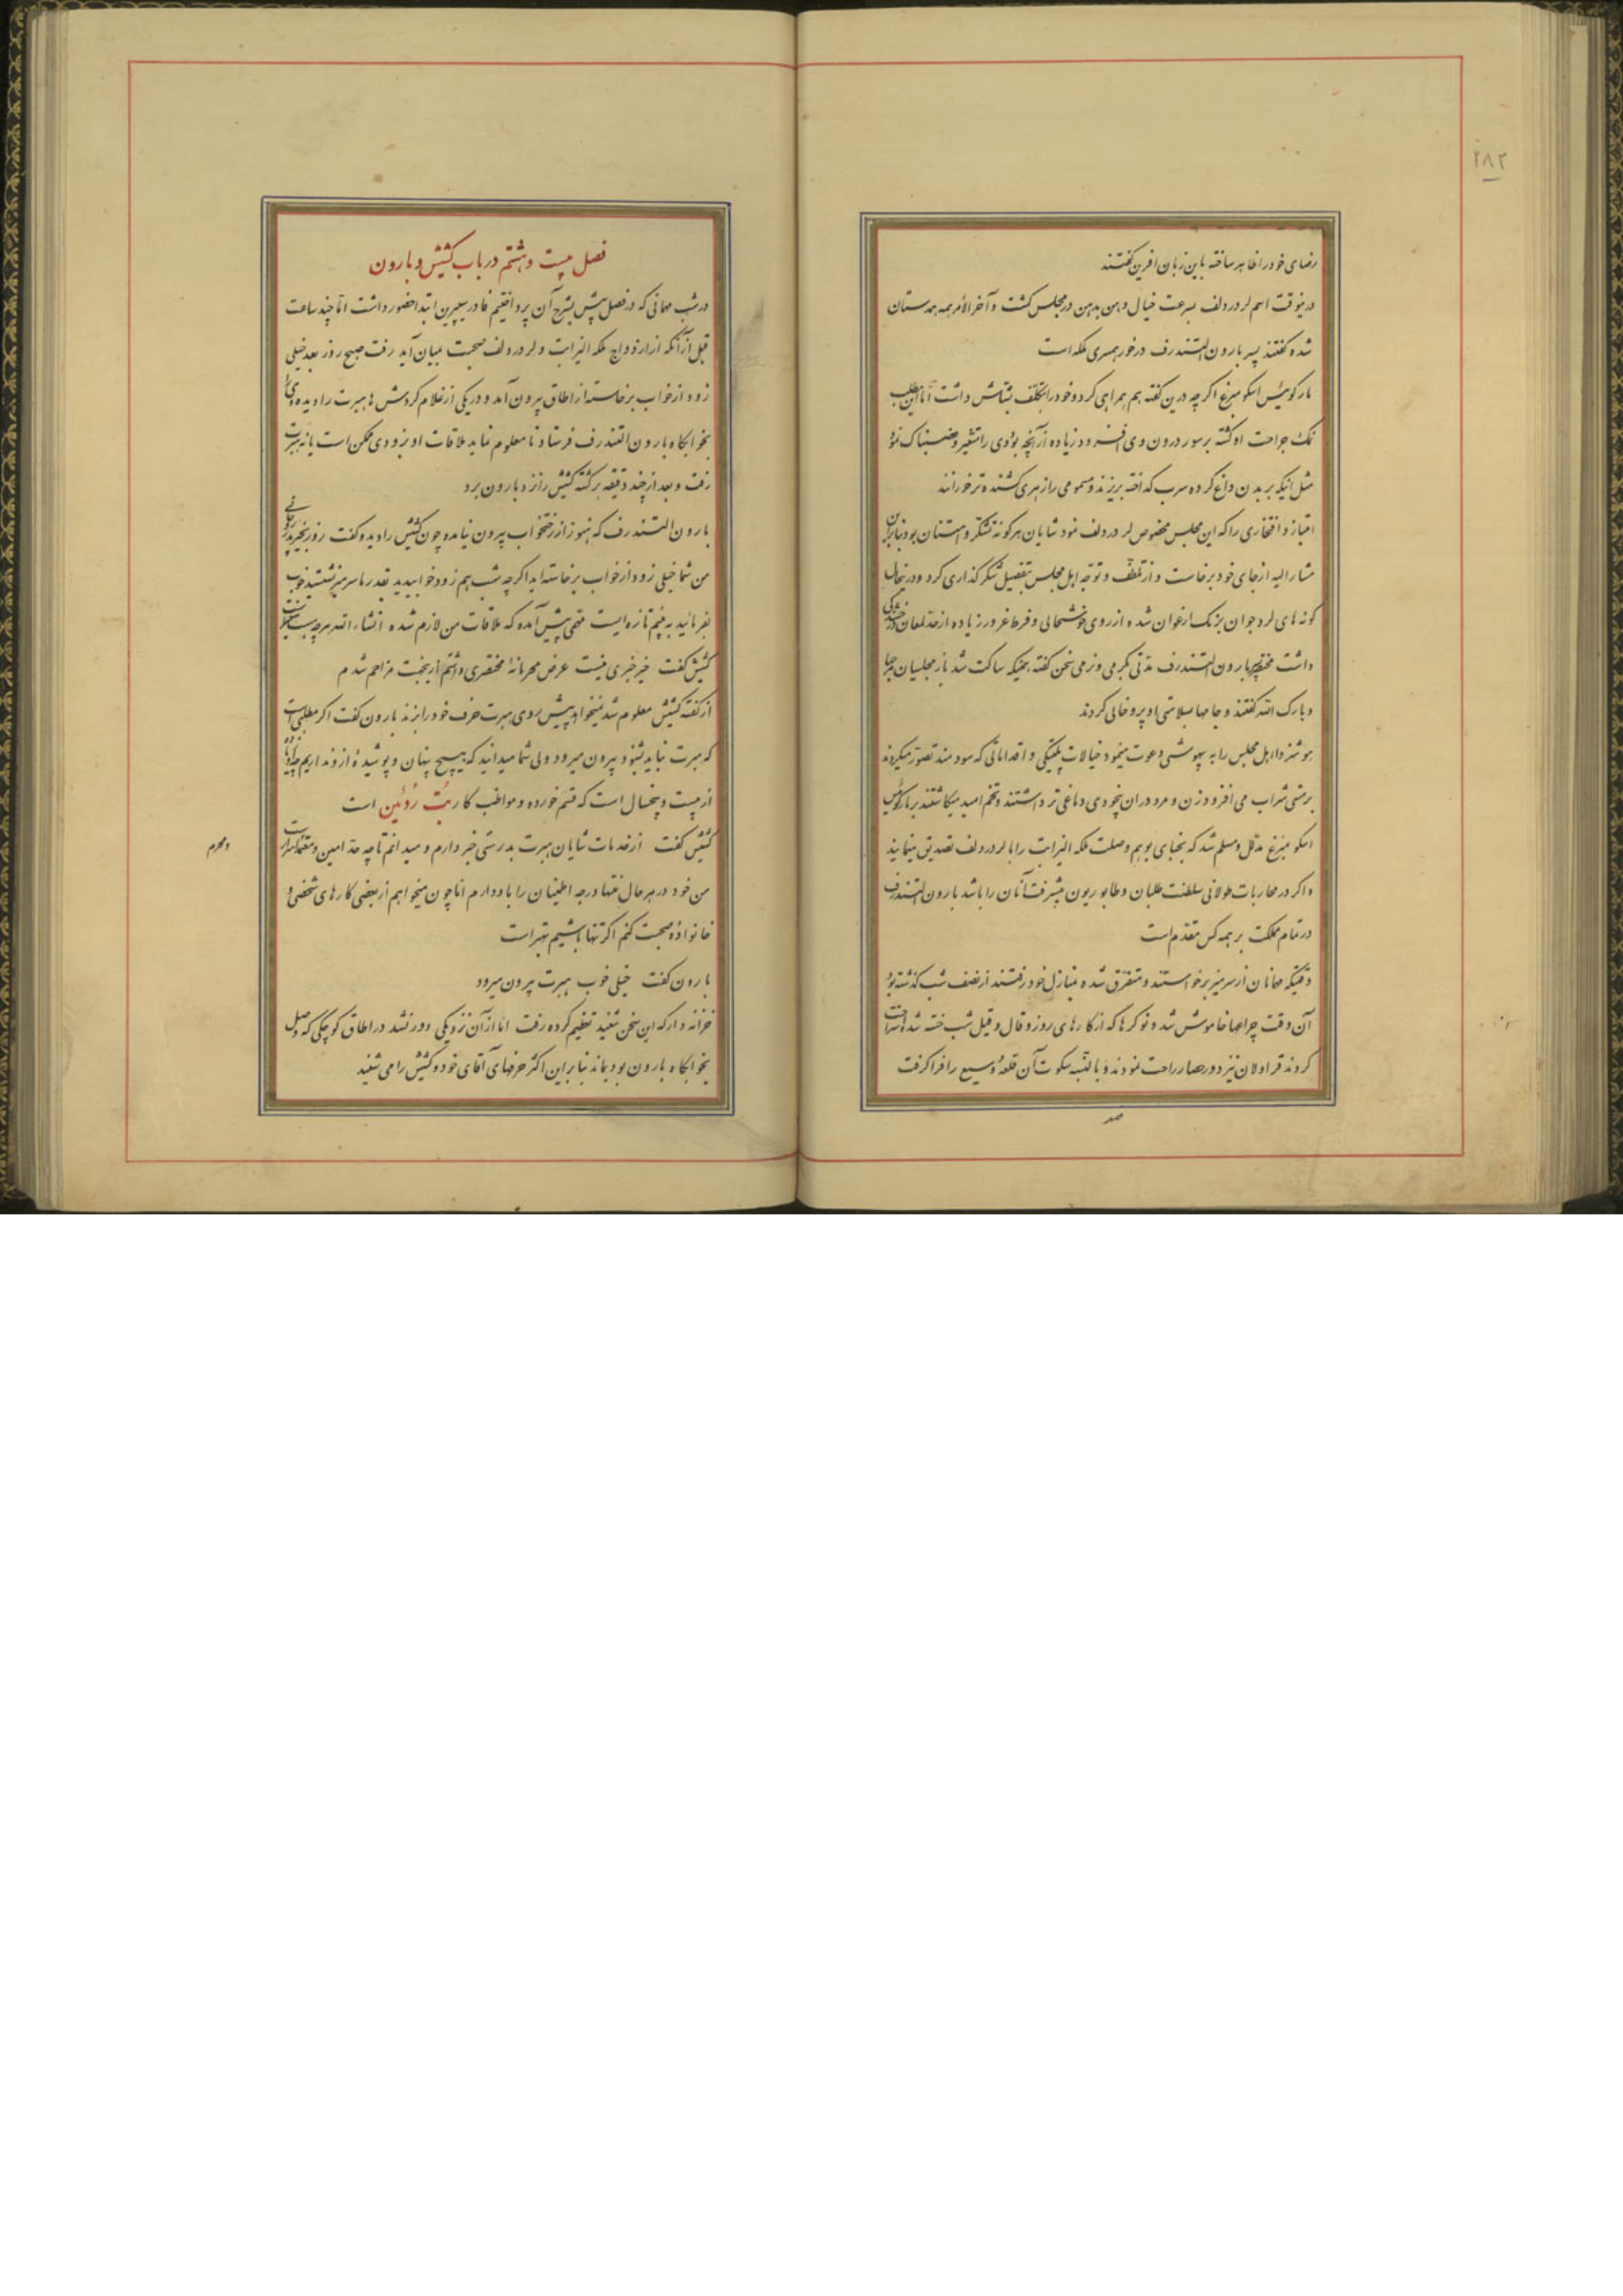 ۲۸۲
رضای خود را ظاهر ساخته باین زبان افرین گفتند
درینوقت اسم لرد ردلف بسرعت خیال دهن بدهن در مجلس گشت و آخر الأمر همه همدستان
شده گفتند پسر بارون التندرف درخور همسری ملکه است
مارکویس اسکومبرغ اگر چه درین گفته هم همراهی کرد و خود را بتکلف بشاش داشت امّا این مطلب
نمک جراحت او گشته بر سور درون وی افزود و زیاده از آنچه بود وی را متغیر و غضبناک نمود
مثل اینکه بر بدن داغ کرده سرب گداخته بریزند و مسمومی را زهری کشنده‌تر خورانند
امتیاز و افتخاری را که این مجلس مخصوص لرد ردلف نمود شایان هر گونه تشکّر و امتنان بود بنابراین
مشارالیه از جای خود برخاست و از تلطّف و توجّه اهل مجلس بتفصیل شکرگذاری کرد و درینحال
گونه‌های لرد جوان برنگ ارغوان شده از روی خوشحالی و فرط غرور زیاده از حدّ لمعان و درخشندگی
داشت مختصر بارون التندرف مدّتی بگرمی و نرمی سخن گفته همینکه ساکت شد باز مجلسیان مرحبا
و بارک الله گفتند و جامها بسلامتی او پر و خالی کردند
هوشنر دا اهل مجلس را به بیهوشی دعوت مینمود خیالات پلتیکی و اقداماتی که سودمند تصوّر میکردند
بر مستی شراب می‌افزود زن و مرد در ان بیخودی دماغی تر داشتند و تخم امید میکاشتند بر مارکویس
اسکومبرغ مدلّل و مسلّم شد که نجبای بوهم وصلت ملکه الیزابت را با لرد ردلف تصدیق مینمایند
و اگر در محاربات طولانی سلطنت طلبان و طابوریون پیشرفت آنان را باشد بارون التندرف
در تمام مملکت بر همه کس مقدّم است
وقتیکه مهمانان از سر میز برخواستند و متفرّق شده بمنازل خود رفتند از نصف شب گذشته بود
آن وقت چراغها خاموش شد و نوکرها که از کارهای روز و قال و قیل شب خسته شده استراحت
کردند قراولان نیز دور حصار راحت نمودند و بالنّسبه سکوت آن قلعهٔ وسیع را فرا گرفت
فصل بیست و هشتم در باب کشیش و بارون
در شب مهمانی که در فصل پیش بشرح آن پرداختیم فادر سیپرین ابتدا حضور داشت امّا چند ساعت
قبل از آنکه از ازدواج ملکه الیزابت و لرد ردلف صحبت بمیان آید رفت صبح روز بعد خیلی
زود از خواب برخاسته از اطاق بیرون آمد و در یکی از غلام گردش‌ها هبرت را دیده وی را
بخوابگاه بارون التندرف فرستاد تا معلوم نماید ملاقات او بزودی ممکن است یا نه هبرت
رفت و بعد از چند دقیقه برگشته کشیش را نزد بارون برد
بارون التندرف که هنوز از رختخواب بیرون نیامده چون کشیش را دیده گفت روز بخیر پدر روحانی
من شما خیلی زود از خواب برخاسته‌اید اگر چه شب هم زود خوابیدید بقدر ما سر میز نشستید خوب
بفرمائید به بینم تازه ایست مهمّی پیش آمده که ملاقات من لازم شده انشاء الله هر چه هست
کشیش گفت خیر خبری نیست عرض محرمانهٔ مختصری داشتم ازینجهت مزاحم شدم
از گفته کشیش معلوم شد نمیخواهد پیش روی هبرت حرف خود را بزند بارون گفت اگر مطلبی است
که هبرت نباید بشنود بیرون میرود ولی شما میدانید که هیچ پنهان و پوشیدهٔ از او نداریم
از بیست و پنجسال است که قسم خورده و مواظب کار بُت رُوئین است
کشیش گفت از خدمات شایان هبرت بدرستی خبر دارم و میدانم تا چه حدّ امین و معتمد است
و محرم
من خود در هر حال منتها درجه اطمینان را باو دارم امّا چون میخواهم از بعضی کارهای شخصی و
خانواده صحبت کنم اگر تنها باشیم بهتر است
بارون گفت خیلی خوب هبرت بیرون میرود
خزانه دار که این سخن شنید تعظیم کرده رفت امّا از آن نزدیکی دور نشد در اطاق کوچکی که وصل
بخوابگاه بارون بود بماند بنابراین اکثر حرفهای آقای خود و کشیش را می شنید